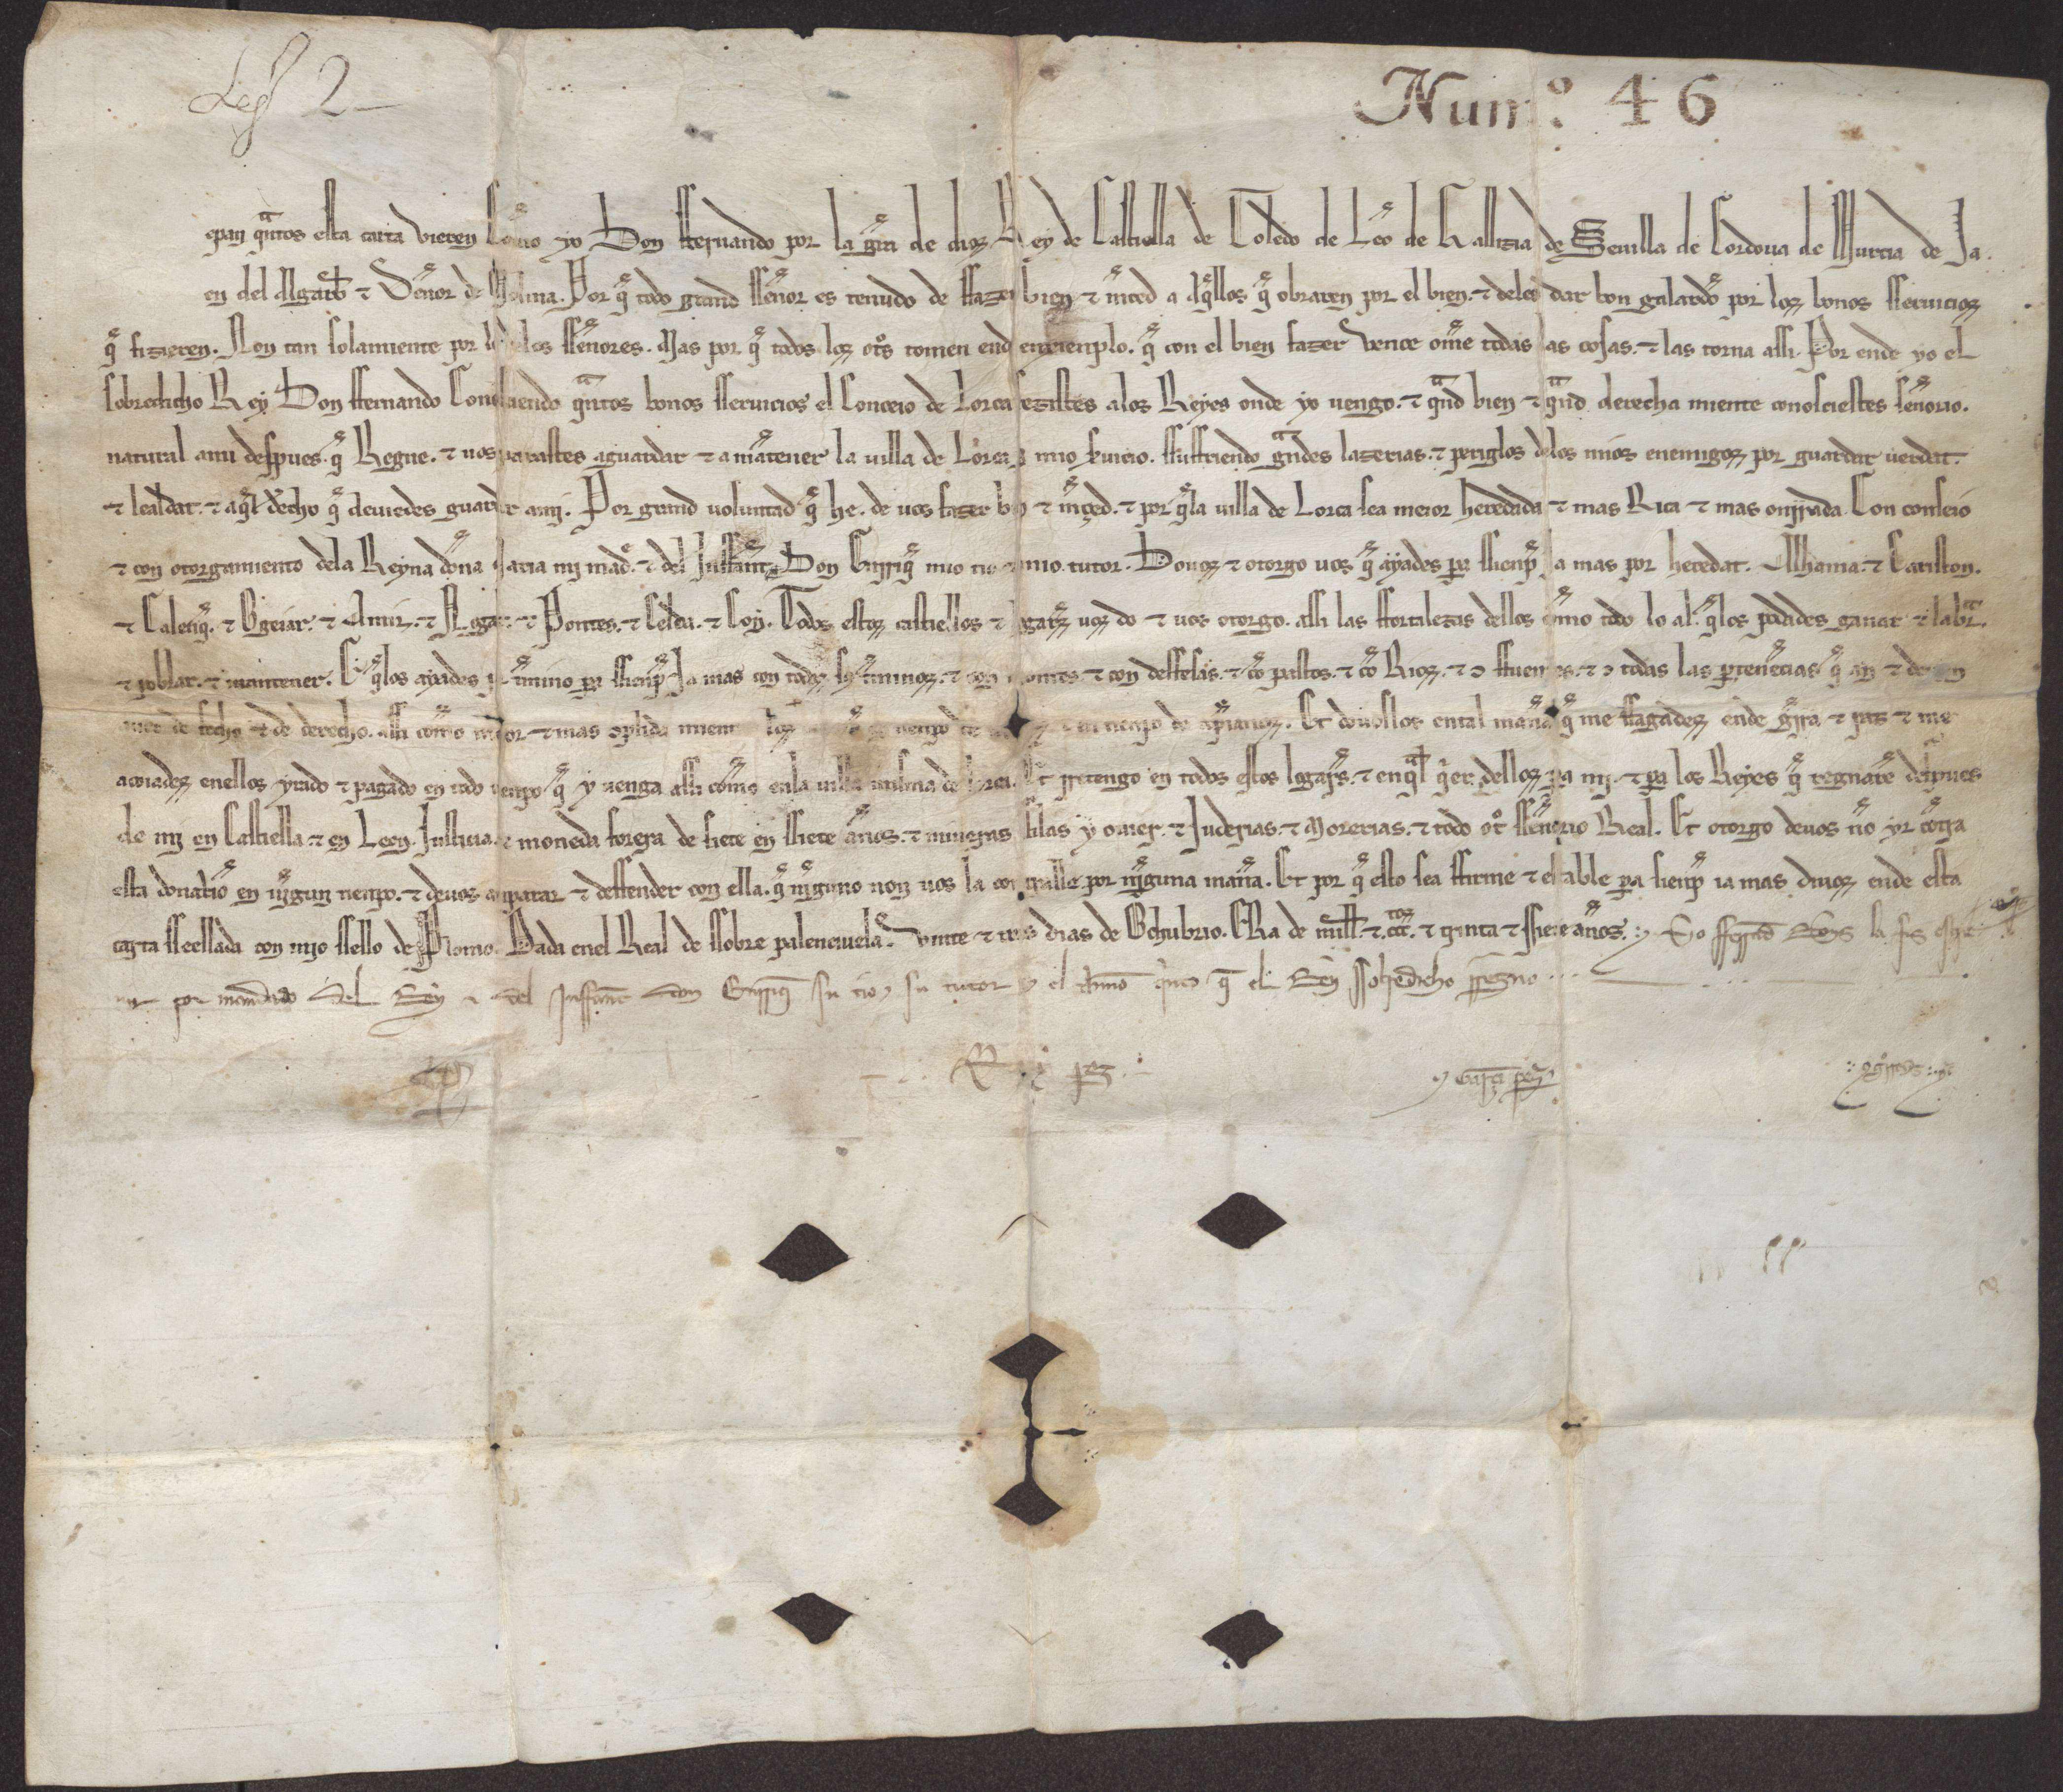 Leg 2
Num.º 46
epan qͣntos esta carta vieren Cõmo yo Don fferrnando por la gr̃a de dios Rey de Castiella de Toledo de Leõ de Gallizia de Seuilla de Cordoua de Murcia de Ja
en del Algarb̃ ⁊ Sẽnor de Molina. Por q̃ todo grand ssẽnor es tenudo de ffazer bien ⁊ m̃ced a Aq̃llos q̃ obraren por el bien. ⁊ deles dar bon galardõ por los bonos sseruicios
q̃ fizieren. Non tan solamiente por los ssẽnores. Mas por q̃ todos los otr̃s tomen end enxienplo. q̃ con el bien fazer vence om̃e todas las cosas. ⁊ las torna assi. Por ende yo el
sobredicho Rey Don fferrnando Conosciendo qͣntos bonos sseruicios el Conceio de Lorca feziestes alos Reyes onde yo uengo. ⁊ qͣnd bien ⁊ qͣnd derecha miente conosciestes sẽnorio.
natural ami despues. q̃ Regne. ⁊ uos parastes aguardar ⁊ a mãtener la uilla de Lorca mio seruicio. ssuffriendo gͣndes lazerias. ⁊ periglos delos mios enemigos por guardar uerdat.
⁊ lealdat. ⁊ aq̃l derecho q̃ deuiedes guardar amj. Por grand uoluntad q̃ he. de uos fazer bien ⁊ m̃ced. ⁊ por q̃la uilla de Lorca sea meior heredada ⁊ mas Rica ⁊ mas onrrada. Con conseio
⁊ con otorgamiento dela Reyna dõna Maria mj madr̃. ⁊ del Jnffant̃ Don Enrriq̃ mio tio ⁊ mio tutor. Douos ⁊ otorgo uos q̃ ayades pͣ ssienp̃ Ja mas por heredat. Alhama. ⁊ Cariston.
⁊ Calenq̃. ⁊ Ugeiar. ⁊ Amir. ⁊ ⁊ Pontes. ⁊ Celda. ⁊ Coy. Todos estos castiellos ⁊ logar̃s uos do ⁊ uos otorgo. assi las ffortalezas dellos cõmo todo lo al. q̃los podades ganar ⁊ labrͣ.
⁊ poblar. ⁊ mantener. E q̃los ayades por t̃mino pͣ ssienp̃ Ja mas con todos sus t̃minos. ⁊ con montes. ⁊ con deffesas. ⁊ cõ pastos. ⁊ cõ Rios. ⁊ ɔ̃ ffuentes. ⁊ ɔ̃ todas las pertenẽcias q̃ an ⁊ deuen
auer de fecho ⁊ de derecho. assi cõmo meior ⁊ mas ɔplida mient los tienpo de ⁊ en tienpo de xp̃ianos. Et douoslos ental mañera q̃ me ffagades ende guerra ⁊ paz ⁊ me
acoiades enellos yrado ⁊ pagado en todo tienpo q̃ y uenga assi cõmo enla uilla misma de Lorca. Et rretengo en todos estos logar̃s. ⁊ enqͣl q̃er. dellos pͣ mj. ⁊ pͣ los Reyes q̃ regnarẽ despues
de mj en Castiella. ⁊ en Leon. Justicia. ⁊ moneda forera de siete en ssiete ãnos. ⁊ mineras si las y ouier. ⁊ Juderias. ⁊ Morerias. ⁊ todo otr̃ ssẽnorio Real. Et otorgo deuos nõ yr cõtra
esta donatiõ en nĩgun tienpo. ⁊ deuos anparar ⁊ deffender con ella. q̃ nĩguno non uos la contralle por nĩguna mañera. Et por q̃ esto sea ffirme ⁊ estable pͣ sienp̃ ia mas diuos ende esta
carta sseellada con mjo ssello de Plomo. Dada enel Real de ssobre palençuela. Veynte ⁊ tres dias de Ochubrio. ERa de mill̃. ⁊.ccc.tos ⁊ trinta ⁊ ssiete ãnos. Yo ffferrand la fis escre
uir por mandado del Rey ⁊ del Jnffant don Enrriq̃ su tio ⁊ su tutor en el Anno quinto q̃ el Rey ssobredicho rregno
Garçi perez